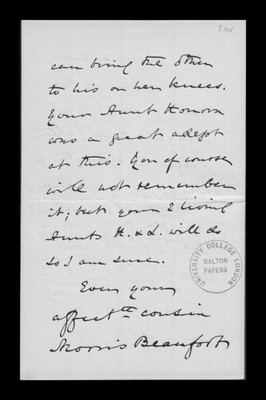 can bring the other
to his or her knees.
Your Aunt Honora
was a great adept
at this. You of course
will not remember
it; but your 2 living
Aunts H. & L. will do
so I am sure.
Ever your
affect.te cousin
Morris Beaufort
UNIVERSITY COLLEGE LONDON
GALTON
PAPERS